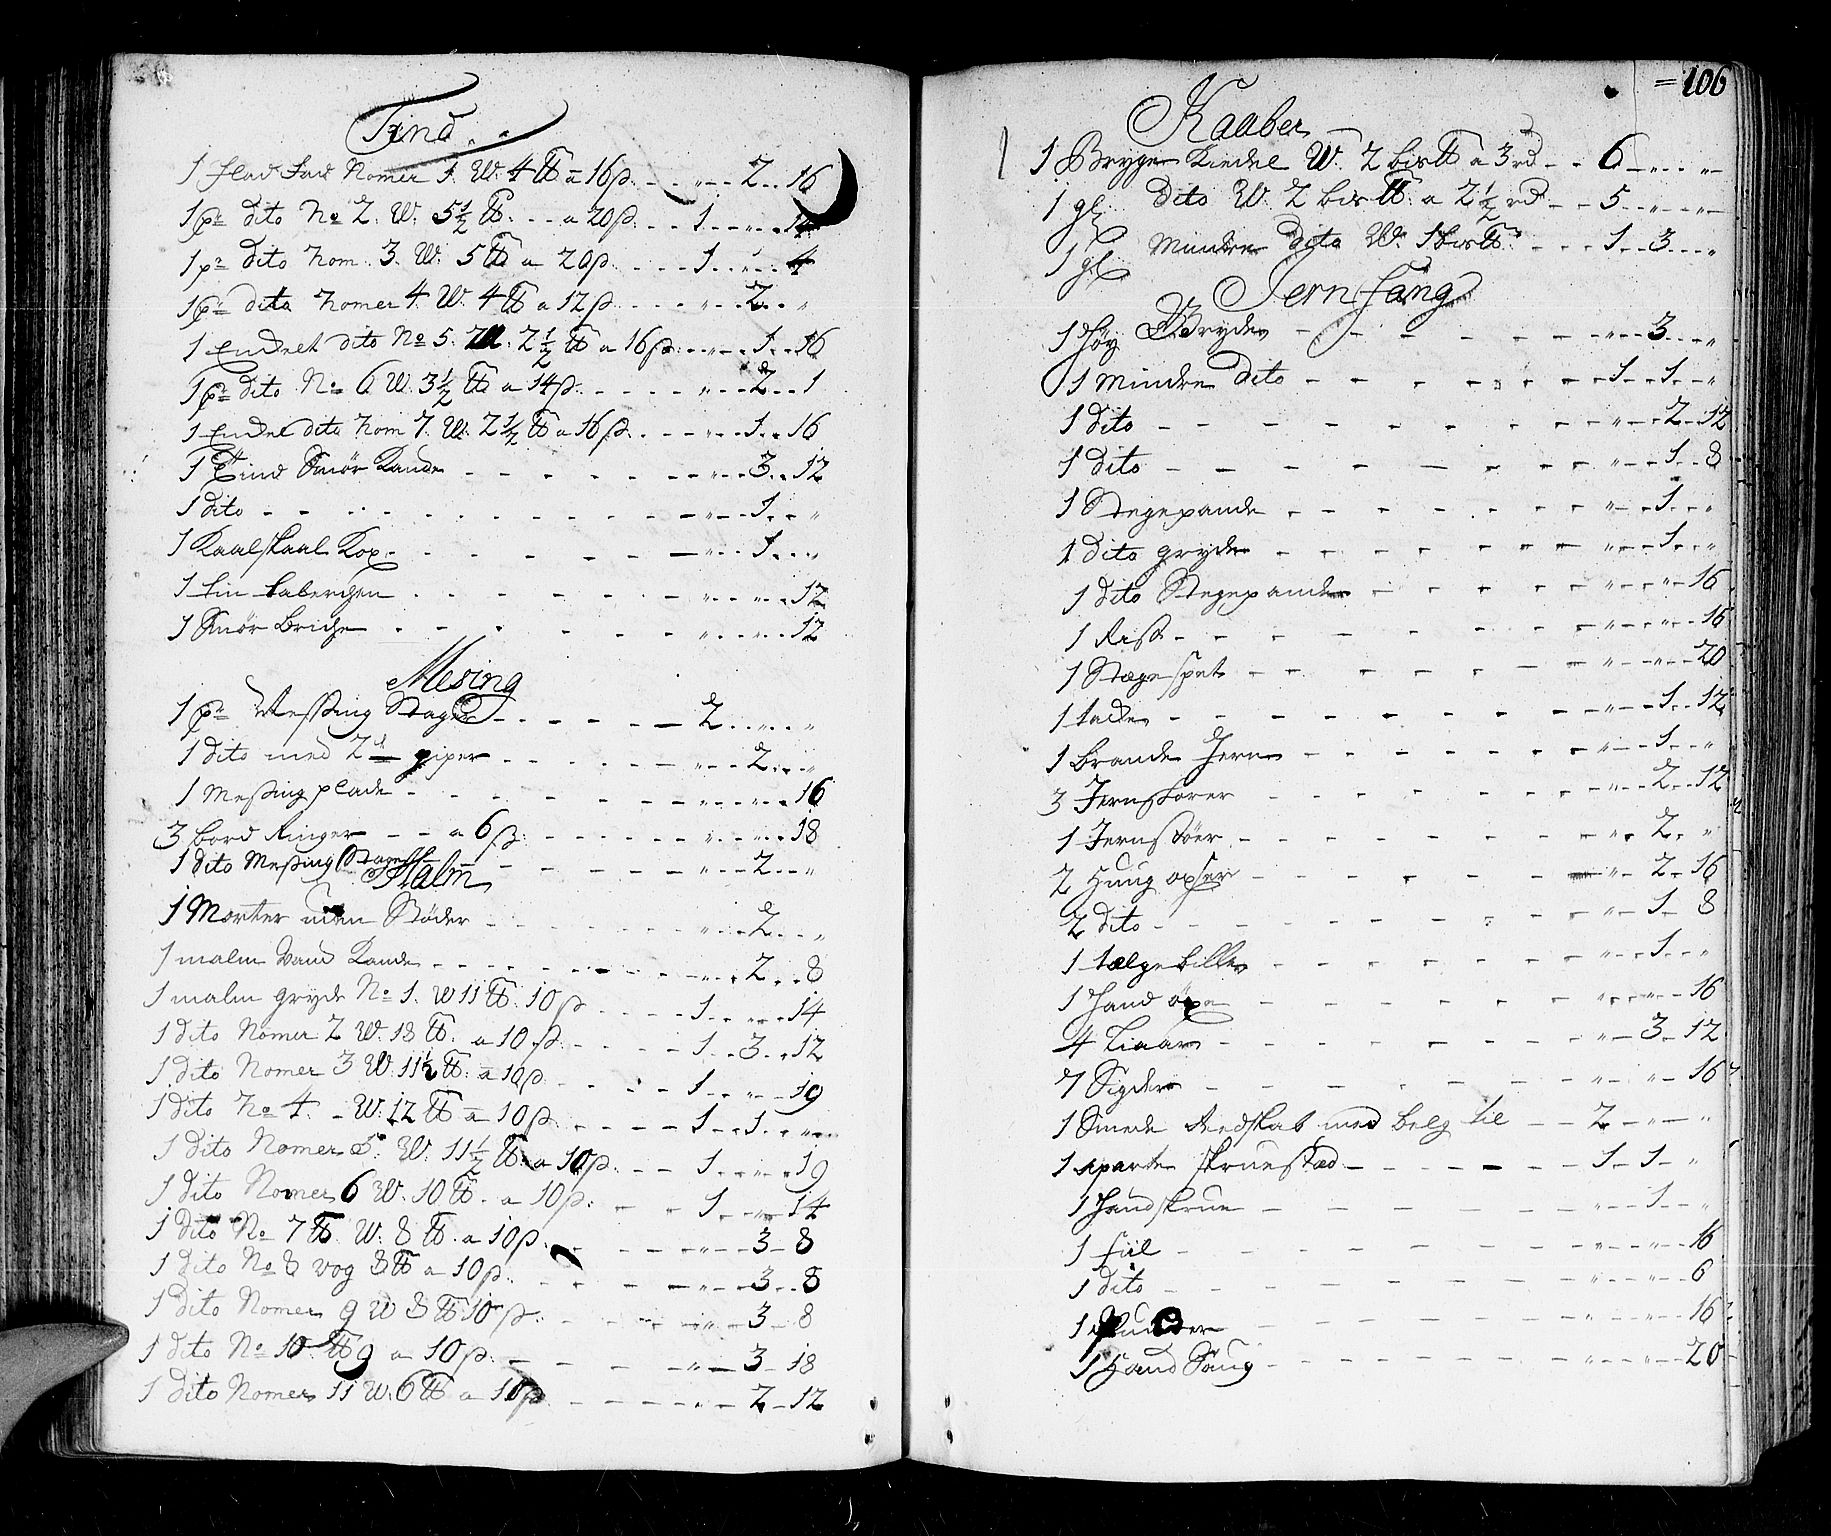 Tind
1 flad Fad Nomer 1. W. 4 ℔ a 16 ß. - - „ - 2 - 16
1 pr dito No 2. W. 5½ ℔. - - a 20 ß. - - 1 - „ - 14
1 pr dito Nom. 3. W. 5 ℔ a 20 ß - - - 1 - „ - 4
1 pr dito Nomer 4. W. 4 ℔ a 12 ß - - - „ - 2 - „
1 Enckel dito No 5. W. 2½ ℔ a 16 ß. - - „ - 1 - 16
1 pr dito No 6 W. 3½ ℔ a 14 ß. - - - „ - 2 - 1
1 Enckel dito Nom 7. W. 2½ ℔ a 16 ß. - - „ - 1 - 16
1 Tind Smør Kande - - - „ - 3 - 12
1 dito - - - „ - 1 - „
1 Kaalskaal Kop - - - „ - 1 - „
1 tin taberchen - - - „ - „ - 12
1 Smør Briche - - - „ - „ - 12
Mesing
1 pr Messing Stager - - - 2 - „ - „
1 dito med 2de piper - - - „ - 2 - „
1 Messing plade - - - „ - „ - 16
3 bord Ringer - - a 6 ß. - - - „ - „ - 18
1 dito Messing Stage - - - „ - 2 - „
Malm
1 Morter uden Støder - - - „ - 2 - „
1 malm Vand Kande - - - „ - 2 - 8
1 malm gryde No 1. W 11 ℔. 10 ß - - - 1 - „ - 14
1 dito Nomer 2 W. 18 ℔. a 10 ß. - - - 1 - 3 - 12
1 dito Nomer 3 W. 11½ ℔. a 10 ß - - - 1 - „ - 19
1 dito No 4. - W. 12 ℔ a 10 ß. - - - 1 - 1 - „
1 dito Nomer 5. W. 11½ ℔. a 10 ß. - - 1 - „ - 19
1 dito Nomer 6 W. 10 ℔. a 10 ß. - - 1 - „ - 14
1 dito No 7 ℔. W. 8 ℔. a 10 ß. - - - „ - 3 - 8
1 dito No 8 vog 8 ℔ a 10 ß. - - - „ - 3 - 8
1 dito Nomer 9 W 8 ℔ 10 ß. - - - „ - 3 - 8
1 dito No 10. ℔ 9 a 10 ß. - - - „ - 3 - 18
1 dito Nomer 11 W. 6 ℔ a 10 ß - - - „ - 2 - 12
= 106
Kaaber
1 Brygge Kiedel W. 2 bis℔ a 3 rd - - 6 - „ - „
1 gl. dito W. 2 bis℔. a 2½ rd - - 5 - „ - „
1 gl. Mindre dito W. 1 bis℔. - - - 1 - 3 - „
Jernfang
1 Høy Gryde - - - „ - 3 - „
1 Mindre dito - - - 1 - 1 - „
1 dito - - - „ - 2 - 12
1 dito - - - „ - 1 - 8
1 Stegepande - - - „ - 1 - „
1 dito gryde - - - „ - 1 - „
1 dito Stegepande - - - „ - „ - 16
1 Rist - - - „ - „ - 16
1 Stegespet - - - „ - „ - 20
1 tacke - - - „ - 1 - 12
1 brande Jern - - - „ - 1 - „
3 Jernstører - - - „ - 2 - 12
1 Jernstøer - - - „ - 2 - „
2 Hung øxer - - - „ - 2 - 16
2 dito - - - „ - 1 - 8
1 tælgebille - - - „ - 1 - „
1 Hand øxe - - - „ - „ - 16
4 Liaar - - - „ - 3 - 12
7 Sigder - - - „ - „ - 16
1 Smede Redskab med belg til - - 2 - „ - „
1 aparte skruestad - - - 1 - 1 - „
1 Handskrue - - - „ - 1 - „
1 fiil - - - „ - „ - 16
1 dito - - - „ - „ - 6
1 - - - „ - „ - 16
1 Hand Saug - - - „ - „ - 20